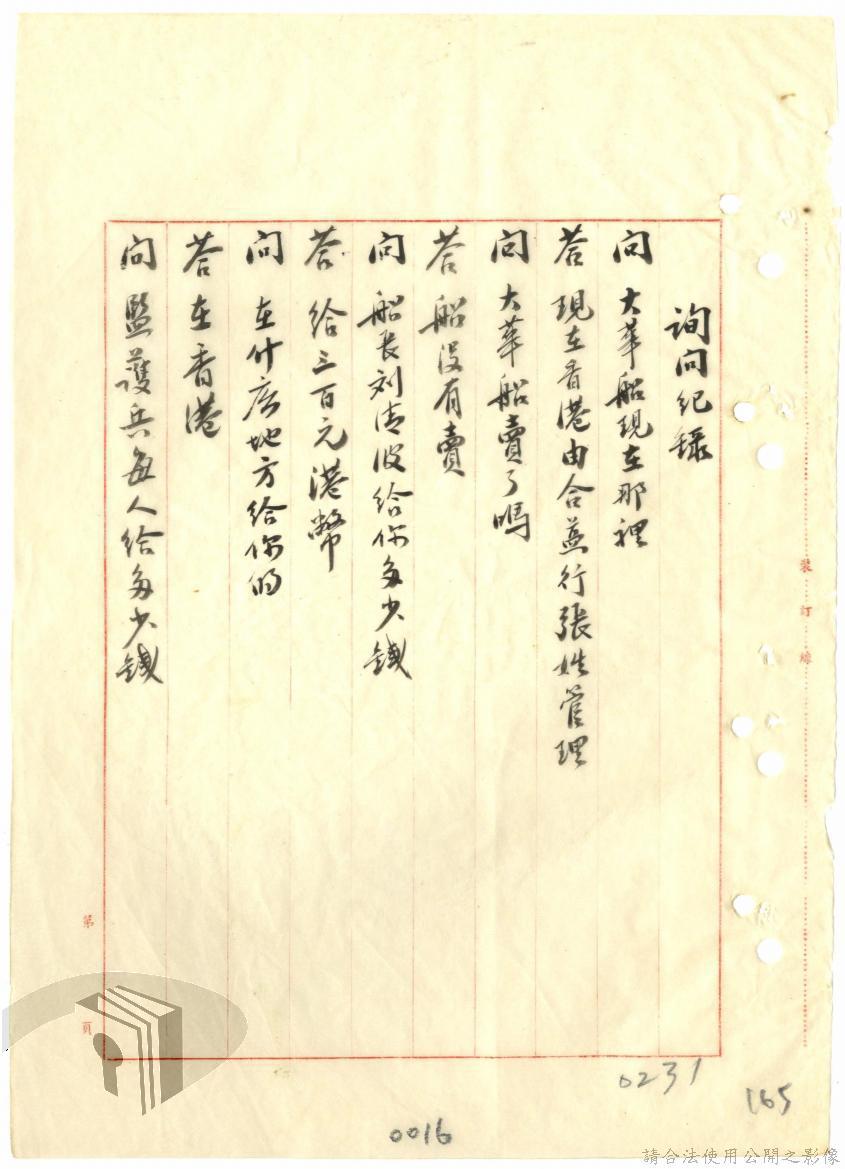 詢问纪錄
问 大華船現在那裡
荅 現在香港由合益行張姓管理
问 大華船賣了嗎
荅 船没有賣
问 船長刘清波给你多少錢
荅 给三百元港幣
问 在什庅地方给你的
荅 在香港
问 監護兵每人给多少錢
裝訂線
第 頁
0231
165
0016
請合法使用公開之影像